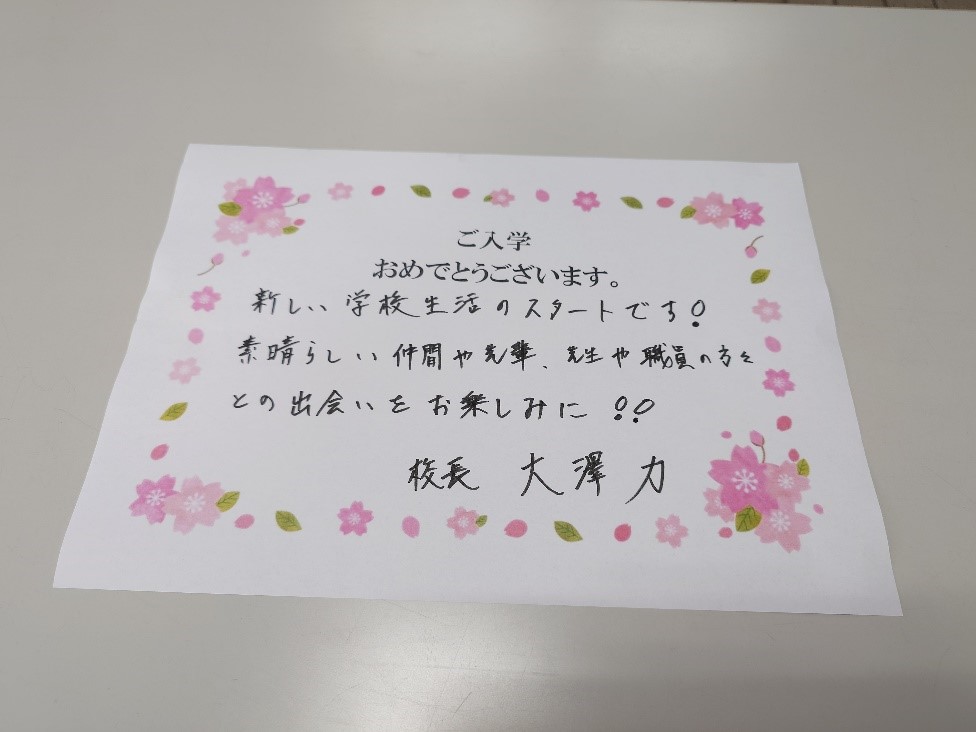 ご入学
おめでとうございます。
新しい学校生活のスタートです!
素晴らしい仲間や先輩、先生や職員の方々
との出会いをお楽しみに!!
校長 大澤 力